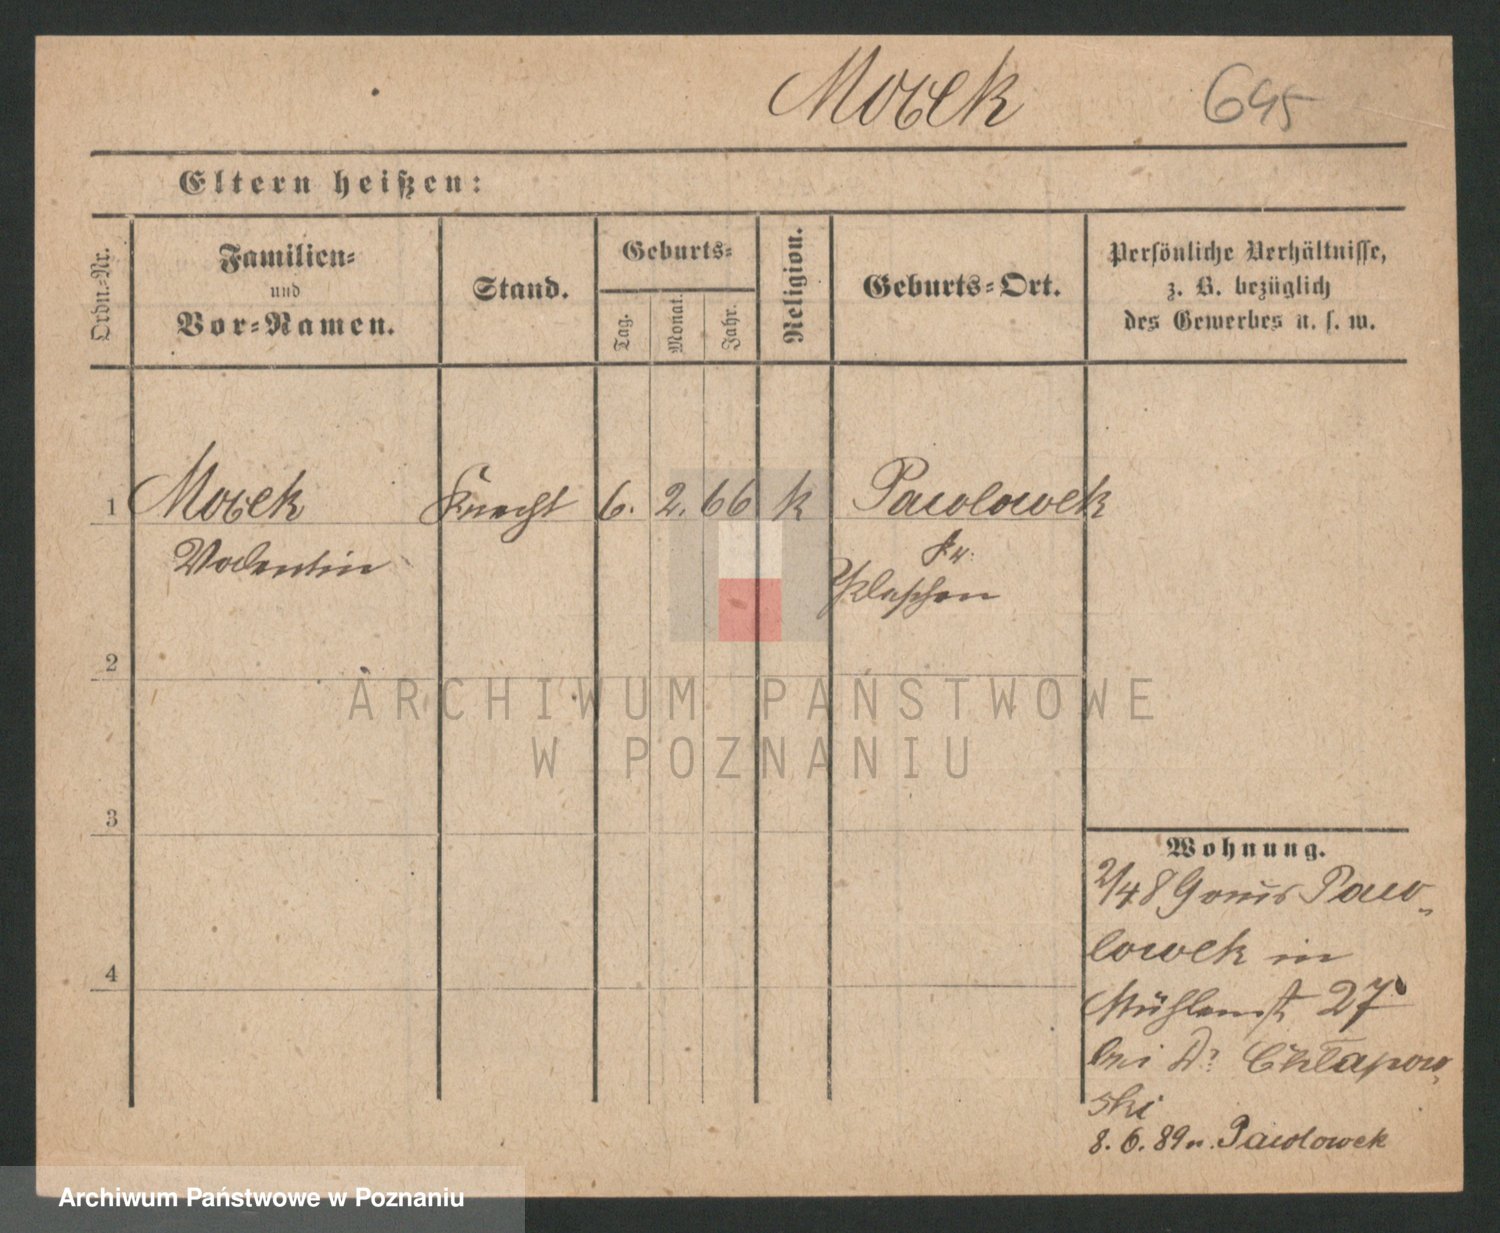 Morek 695
Eltern heißen:
Ordn.-Nr.
Familien-
und
Vor-Namen.
Stand.
Geburts-
Tag.
Monat.
Jahr.
Religion.
Geburts-Ort.
Persönliche Verhältnisse,
z. B. bezüglich
des Gewerbes u. s. w.
1 Mocek Knecht 6. 2. 66 k Pawlowek
Valentin Kr.
Pleschen
2
3
4
Wohnung.
2/4 8 Paw-
lowek in
Mühlenst 27
bei Dr Chłapow-
ski
8. 6. 89 n. Pawlowek
ARCHIWUM PAŃSTWOWE
W POZNANIU
Archiwum Państwowe w Poznaniu